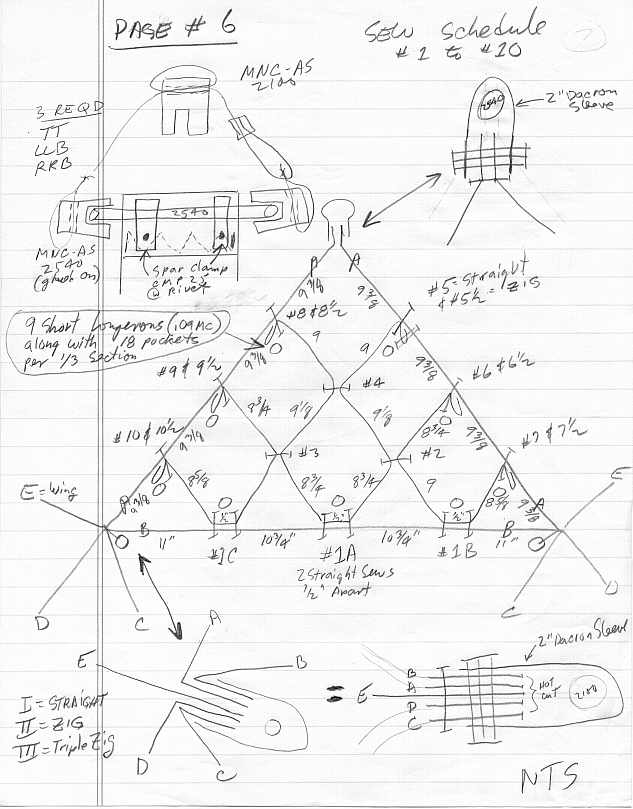 PAGE # 6
SEW Schedule
#1 to #10
MNC-AS
2100
3 REQD
TT
LLB
RRB
2540
2" Dacron
Sleeve
2540
MNC-AS
2540
(glued on)
Spar Clamp
CMP 25
W/ Rivet
A
A
9 3/8
9 3/8
#5 = Straight
& #5½ = ZIG
#8 & 8½
9 Short Longerons (109MC)
along with 18 pockets
per 1/3 Section
9
9
9 3/8
9 3/8
#9 & 9½
#4
#6 & 6½
8 3/4
9 1/8
9 1/8
8 3/4
9 3/8
#10 & 10½
9 3/8
#3
#2
#7 & 7½
8 5/8
8 3/4
8 3/4
9
8 5/8
9 3/8
A
9 3/8
E = Wing
E
B
½"
½"
½"
B
11"
#1C
10 3/4"
#1A
10 3/4"
#1B
11"
2 Straight Sews
½" Apart
D
C
C
D
A
E
B
D
C
2" Dacron Sleeve
=
E
B
A
D
C
HOT
CUT
2100
I = STRAIGHT
II = ZIG
III = Triple Zig
NTS